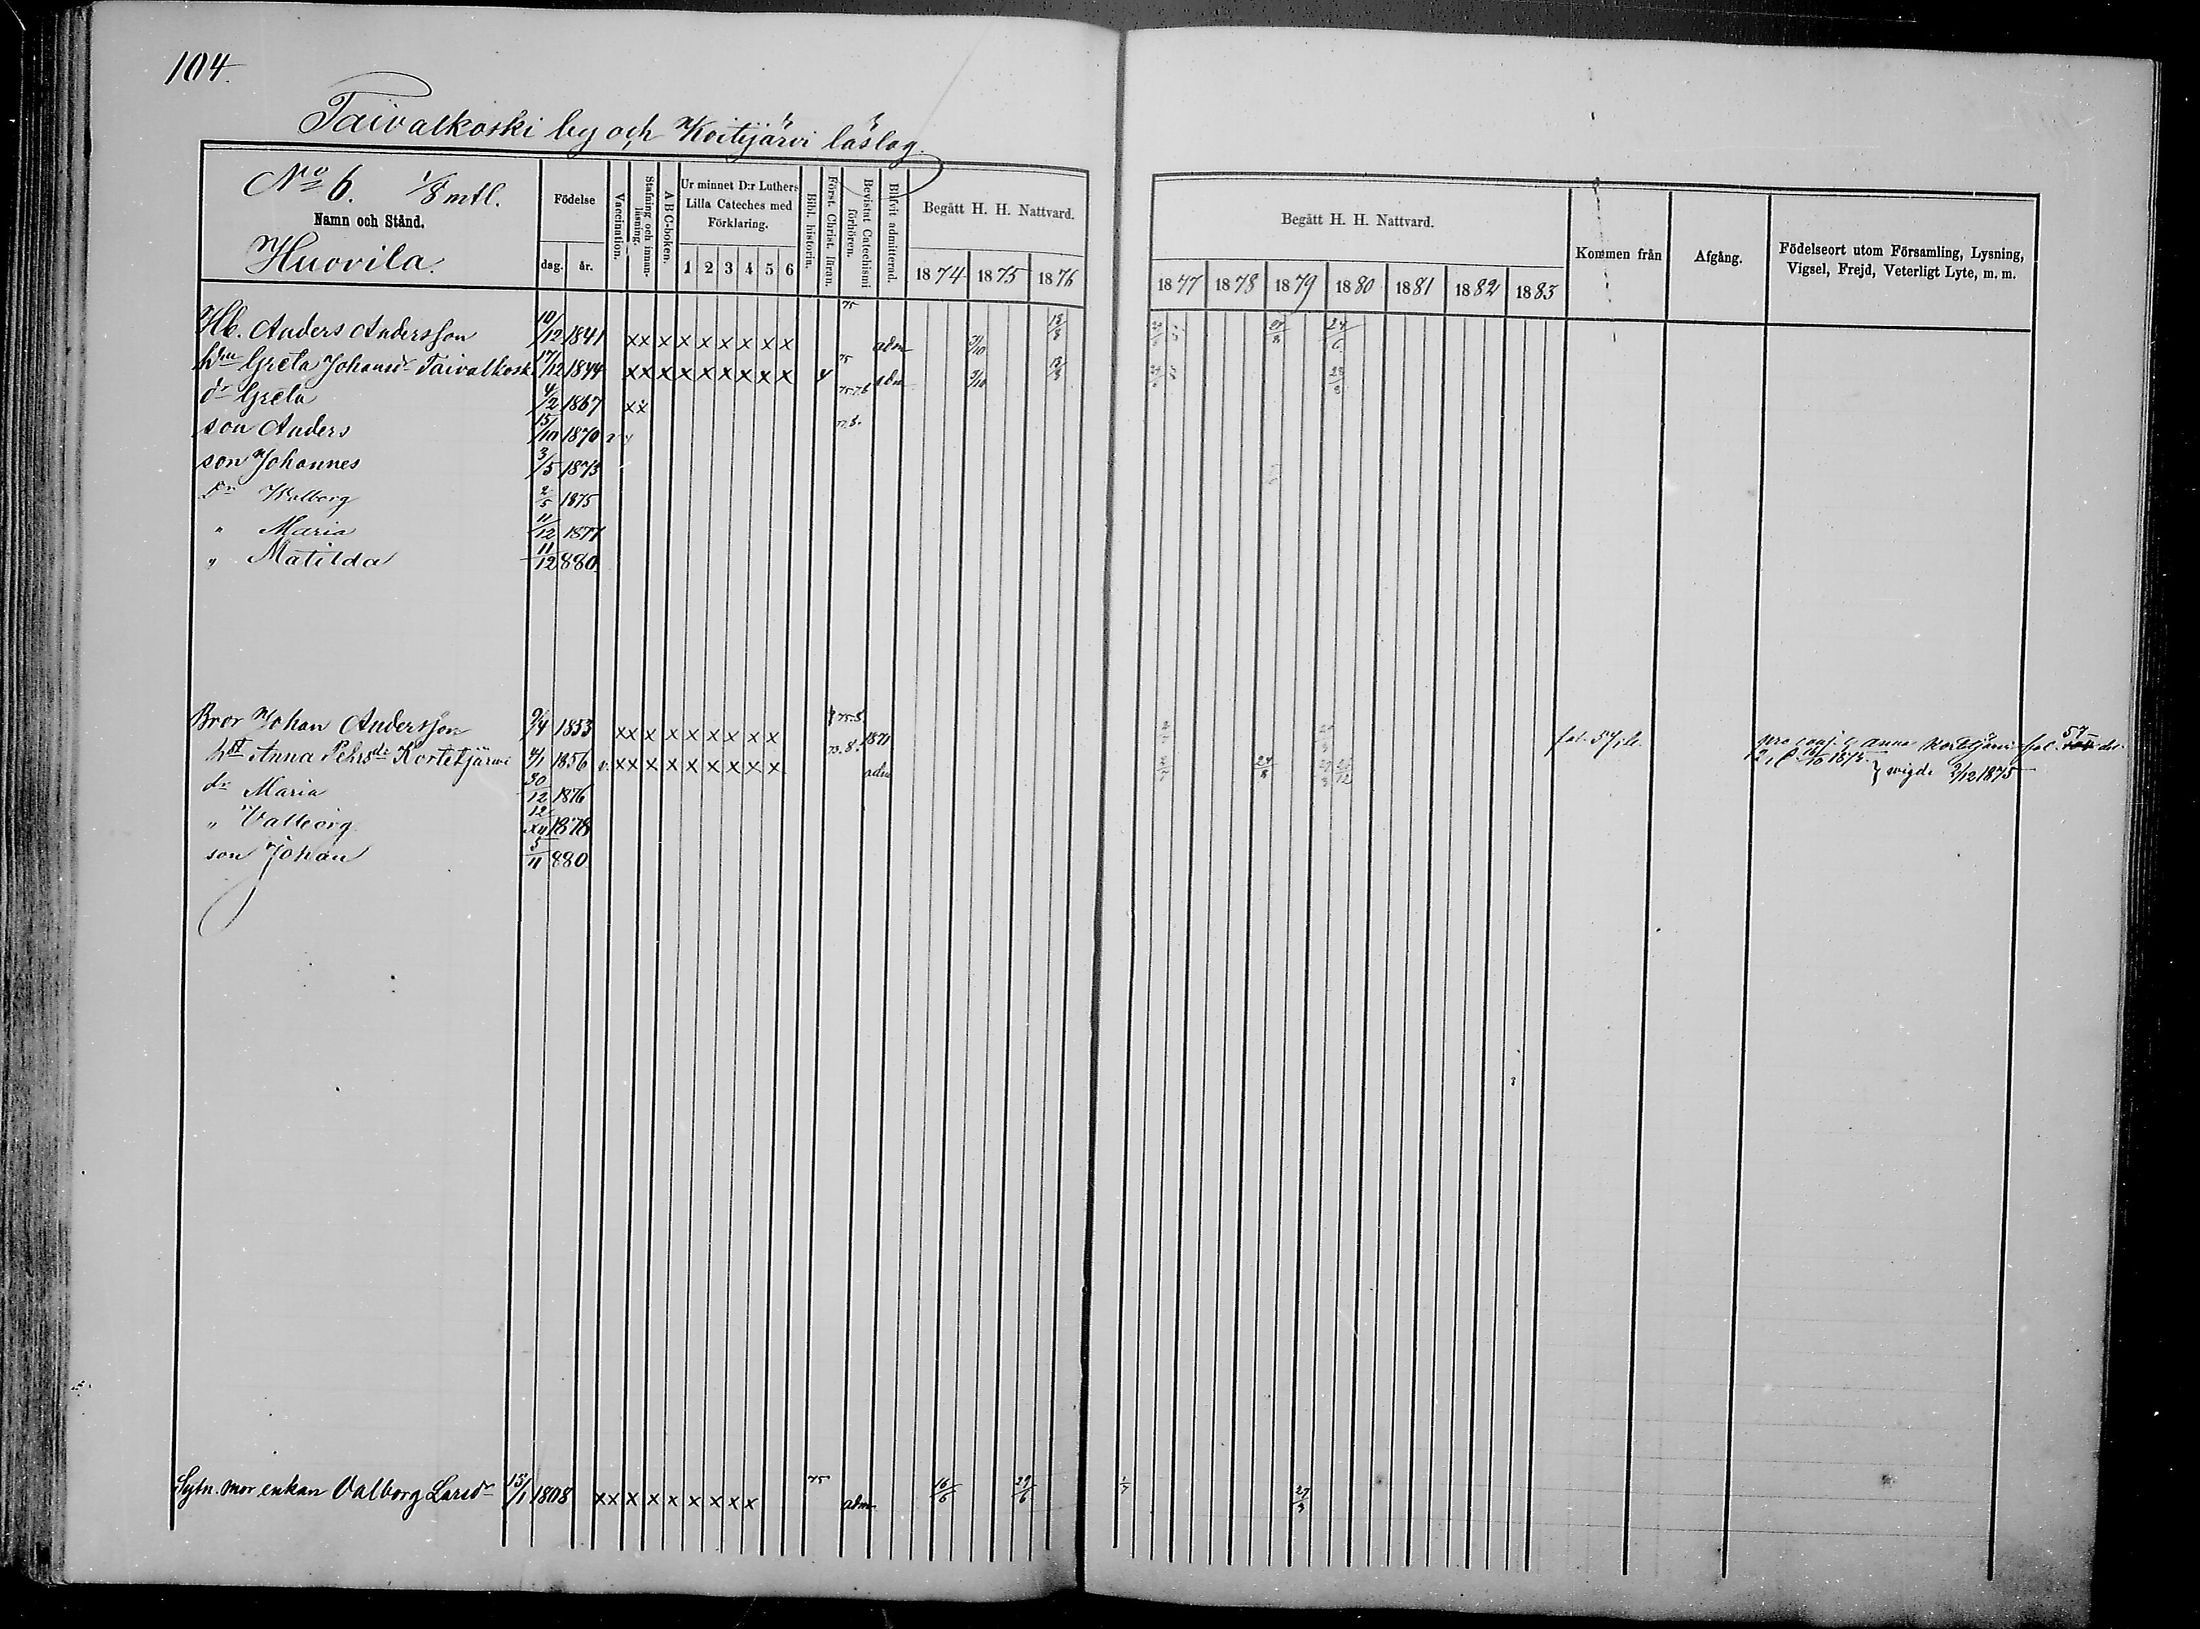 104.
Taivalkoski by och Koitijärvi läslag.
No 6. 1/8 mtl.
Namn och Stånd.
Huovila.
Födelse
dag. år.
Vaccination.
Stafning och innan-läsning.
A B C-boken.
Ur minnet D:r Luthers Lilla Cateches med Förklaring.
1 2 3 4 5 6
Bibl. historin.
Först. Christ. läran.
Bevistat Catechismi förhören.
Blifvit admitterad.
Begått H. H. Nattvard.
1874 1875 1876
Begått H. H. Nattvard.
1877 1878 1879 1880 1881 1882 1883
Kommen från
Afgång.
Födelseort utom Församling, Lysning, Vigsel, Frejd, Veterligt Lyte, m. m.
Hb. Anders Andersson 10/12 1841 x x x x x x x x x 75 adm 3/10 18/3 24/6
hu Greta Johansdr Taivalkosk. 17/12 1844 x x x x x x x x x 4 75 adm 3/10 18/3
dr Greta 4/2 1867 x x 75.76
son Anders 15/10 1870
son Johannes 3/5 1873
dr Walborg 2/5 1875
" Maria 11/12 1877
" Matilda 11/12 880
Bror Johan Andersson 9/4 1853 x x x x x x x x x 1871 fol. 57
hst Anna Pehrsdr Kortetjärvi 4/1 1856 v. x x x x x x x x x adm 24/8 wigde 9/12 1875
dr Maria 30/12 1876
" Valborg 12/XII 1878
son Johan 5/11 880
Sytn. mor enkan Valborg Larsdr 15/1 1808 x x x x x x x x x 75 adm 16/6 29/6 27/3